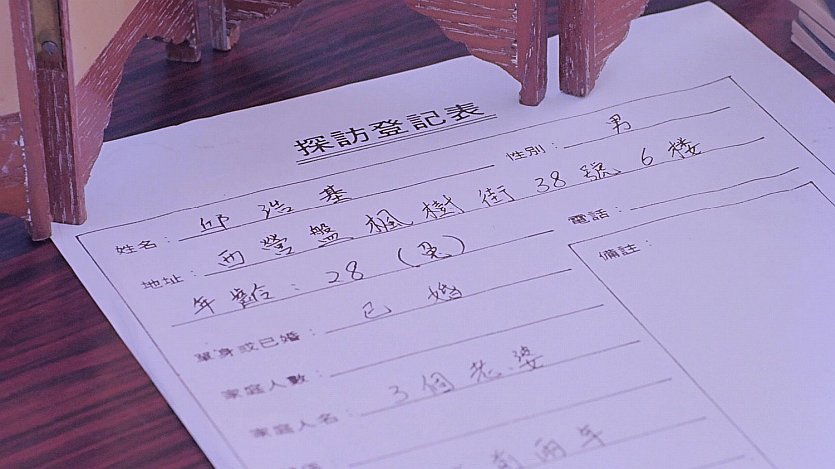 探訪登記表
姓名：邱浩基 性別：男
地址：西營盤楓樹街38號6楼
年齡：28（兔） 電話：
單身或已婚：已婚 備註：
家庭人數：
家庭人名：3個老婆
前兩年